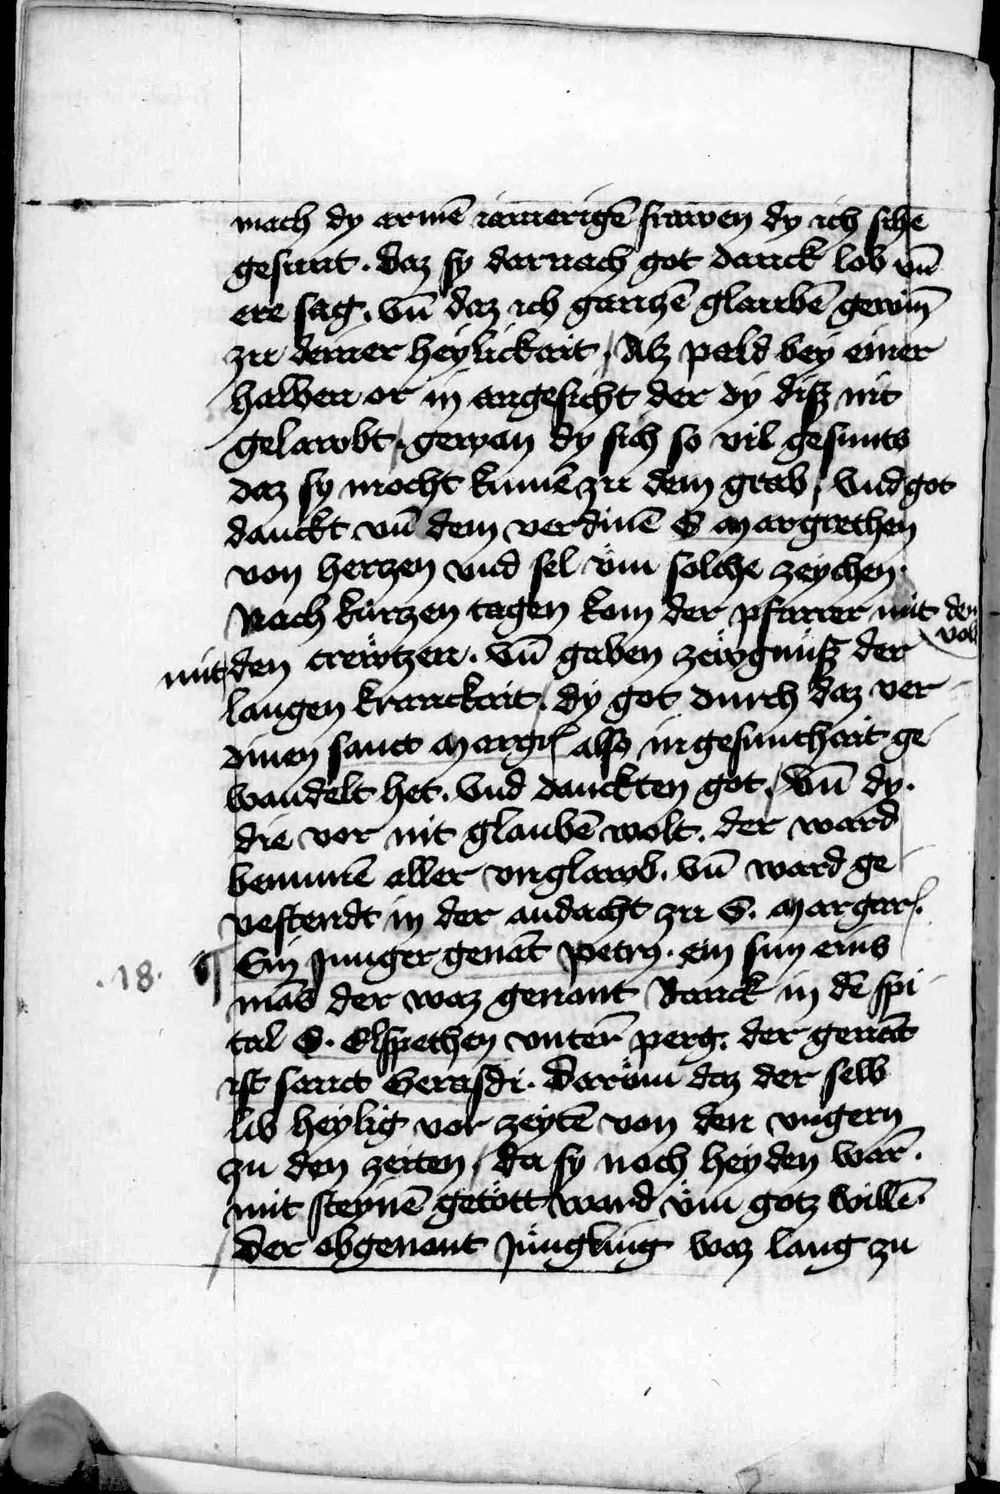 mach dy armē iamerigē frawen dy ich sihe
gesunt. daz sy darnach got danck lob vn̄
ere sag. vn̄ daz ich gantzē glaubē gewiñ
zu deiner heylickait / Alz pald bey einer
halben or in angesicht der dy diß nit
gelawbt / gewan dy sich so vil gesunts
daz sy mocht kumē zu dem grab / Vnd got
danckt vn̄ dem verdinē S margrethen
von hertzen vnd sel vm̈ solche zeychen.
Nach kürtzen tagen kam der pfarrer mit den
volk
mit den crewtzen. Vn̄ gaben zewgnuß der
langen kranckait / dy got durch daz ver
dinen sanct Margr also in gesunthait ge
wandelt het. Vnd danckten got / Vn̄ dy.
die vor nit glaubē wolt. der ward
benumē aller vnglawb. Vn̄ ward ge
vestendt in der andacht zu S. Margar.
.18. Ein Junger genāt petry. ein sun eins
mās der waz genant Banck in dē spi
tal S. Elspethen vnterm perg. der genāt
ist sanct Gerasdi. Darüm daz der selb
lib heylig vor zeytē von den vngern
zu den zeiten / da sy noch heyden warn̄.
mit steynē getött ward üm gotz willē.
Der obgenant Jüngling waz lang zu